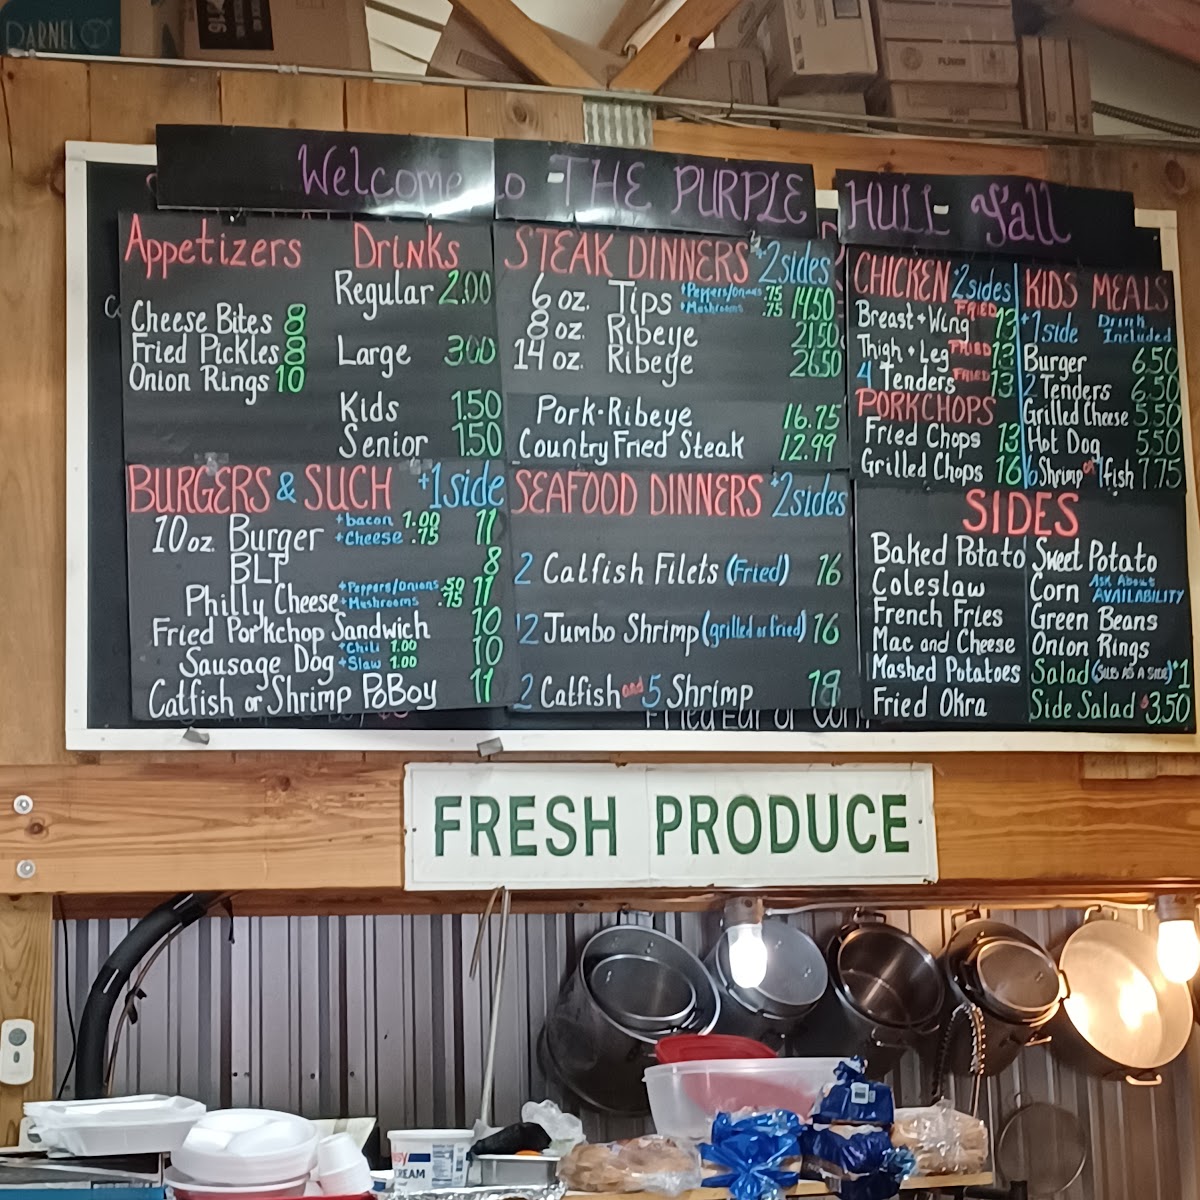 DARNEL
Welcome to THE PURPLE HULL Y'all
Appetizers
Cheese Bites 8
Fried Pickles 8
Onion Rings 10
Drinks
Regular 2.00
Large 300
Kids 1.50
Senior 1.50
STEAK DINNERS +2sides
6 oz. Tips +Peppers/Onions .75 +Mushrooms .75 14.50
8 oz. Ribeye 21.50
14 oz. Ribeye 26.50
Pork-Ribeye 16.75
Country Fried Steak 12.99
CHICKEN 2sides
Breast + Wing FRIED 13
Thigh + Leg FRIED 13
4 Tenders FRIED 13
PORKCHOPS
Fried Chops 13
Grilled Chops 16
KIDS MEALS
+1side Drink Included
Burger 6.50
2 Tenders 6.50
Grilled Cheese 5.50
Hot Dog 5.50
6 Shrimp or 1fish 7.75
BURGERS & SUCH +1side
10oz. Burger +bacon 1.00 +Cheese .75 11
BLT 8
Philly Cheese +Peppers/Onions .50 +Mushrooms .75 11
Fried Porkchop Sandwich 10
Sausage Dog +Chili 1.00 +Slaw 1.00 10
Catfish or Shrimp PoBoy 11
SEAFOOD DINNERS +2sides
2 Catfish Filets (Fried) 16
12 Jumbo Shrimp (grilled or fried) 16
2 Catfish and 5 Shrimp 18
SIDES
Baked Potato
Coleslaw
French Fries
Mac and Cheese
Mashed Potatoes
Fried Okra
Sweet Potato
Corn Ask About AVAILABILITY
Green Beans
Onion Rings
Salad (SUB AS A SIDE) +1
Side Salad $3.50
FRESH PRODUCE